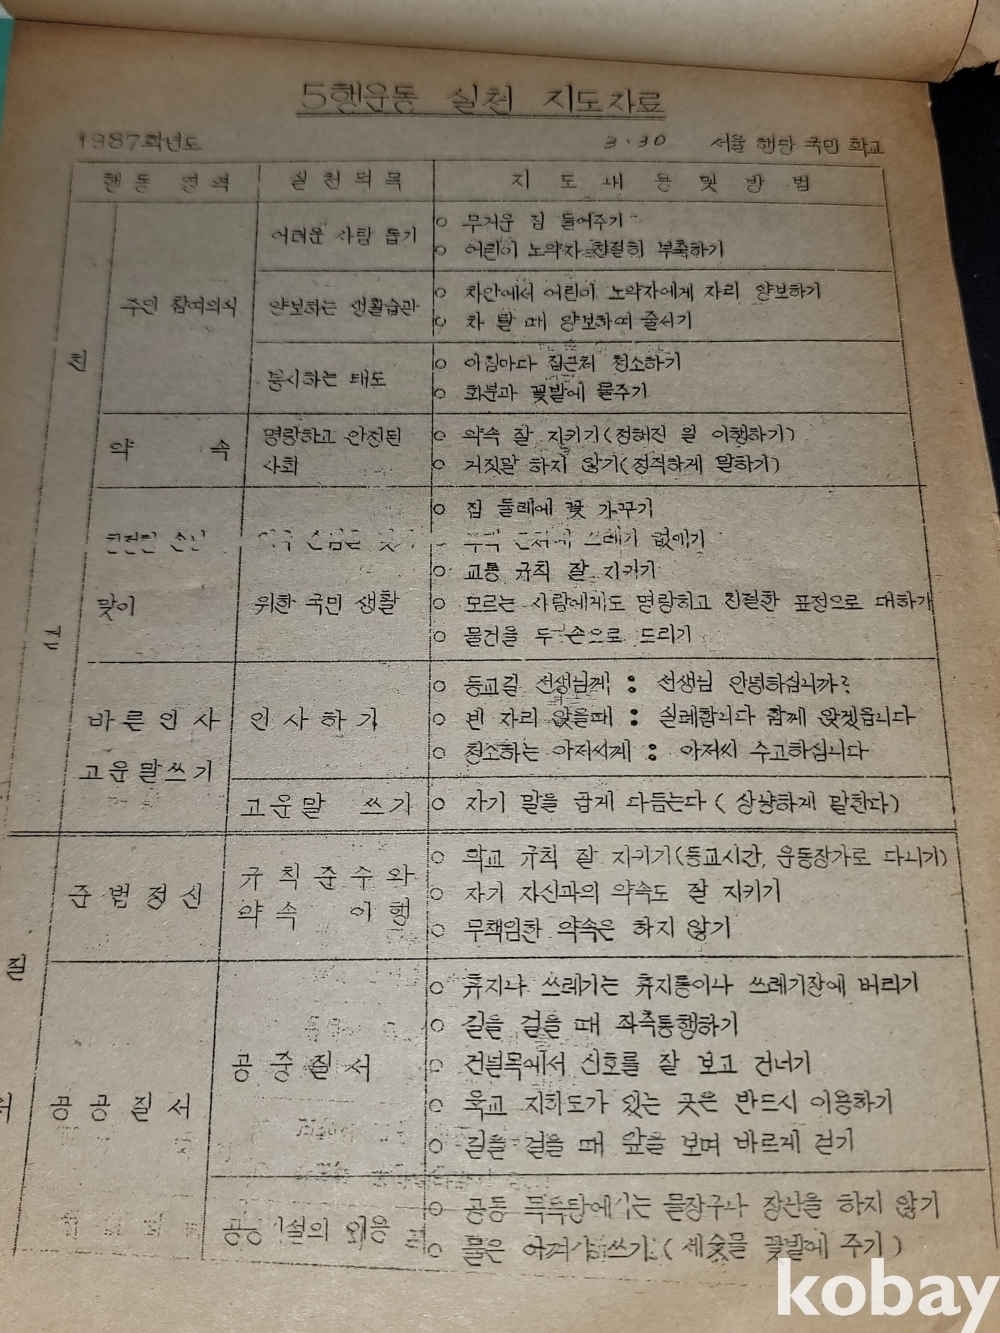 5행운동 실천 지도자료
1987학년도 3.30 서울 행당 국민 학교
행동 영역 실천덕목 지도내용및방법
친
주인 참여의식
어려운 사람 돕기
○ 무거운 짐 들어주기
○ 어린이 노약자 친절히 부축하기
양보하는 생활습관
○ 차안에서 어린이 노약자에게 자리 양보하기
○ 차 탈 때 양보하여 줄서기
봉사하는 태도
○ 아침마다 집근처 청소하기
○ 화분과 꽃밭에 물주기
약 속
명랑하고 안정된
사회
○ 약속 잘 지키기(정해진 일 이행하기)
○ 거짓말 하지 않기(정직하게 말하기)
절
맞이
위한 국민 생활
○ 집 둘레에 꽃 가꾸기
쓰레기 없애기
○ 교통 규칙 잘 지키기
○ 모르는 사람에게도 명랑하고 친절한 표정으로 대하기
○ 물건을 두 손으로 드리기
바른인사
고운말쓰기
인사하기
○ 등교길 선생님께 : 선생님 안녕하십니까?
○ 빈 자리 앉을때 : 실례합니다 함께 앉겠읍니다
○ 청소하는 아저씨께 : 아저씨 수고하십니다
고운말 쓰기
○ 자기 말을 곱게 다듬는다 ( 상냥하게 말한다)
질
준법정신
규칙준수와
약속 이행
○ 학교 규칙 잘 지키기(등교시간, 운동장가로 다니기)
○ 자기 자신과의 약속도 잘 지키기
○ 무책임한 약속은 하지 않기
서
공공질서
공중질서
○ 휴지나 쓰레기는 휴지통이나 쓰레기장에 버리기
○ 길을 걸을 때 좌측통행하기
○ 건널목에서 신호를 잘 보고 건너기
○ 육교 지하도가 있는 곳은 반드시 이용하기
○ 길을 걸을 때 앞을 보며 바르게 걷기
○ 공동 목욕탕에서는 물장구나 장난을 하지 않기
○ 물은 아껴서 쓰기 ( 세숫물 꽃밭에 주기 )
kobay